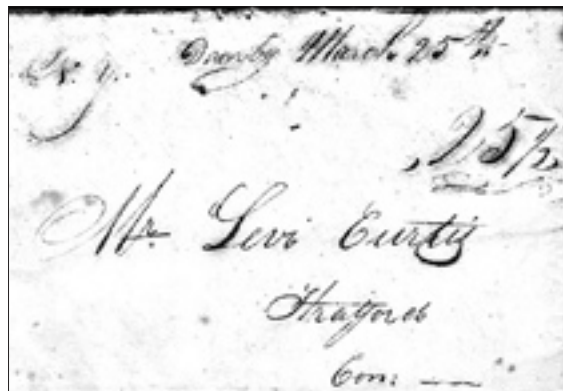 N. Y. Danby March 25th
25½
Mr Levi Curtis
Stratford
Con: